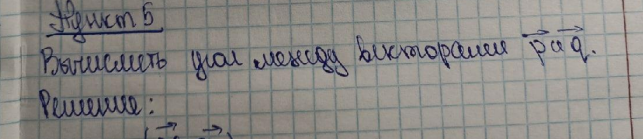 Пункт 5
Вычислить угол между векторами p и q.
Решение: